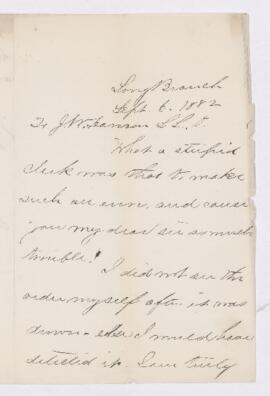 Long Branch
Sept. 6. 1882
To J. W. Dawson LL. D.
What a stupid
clerk was that to make
such an error, and cause
you my dear sir so much
trouble!
I did not see the
order myself after it was
drawn - else I would have
detected it. I am truly